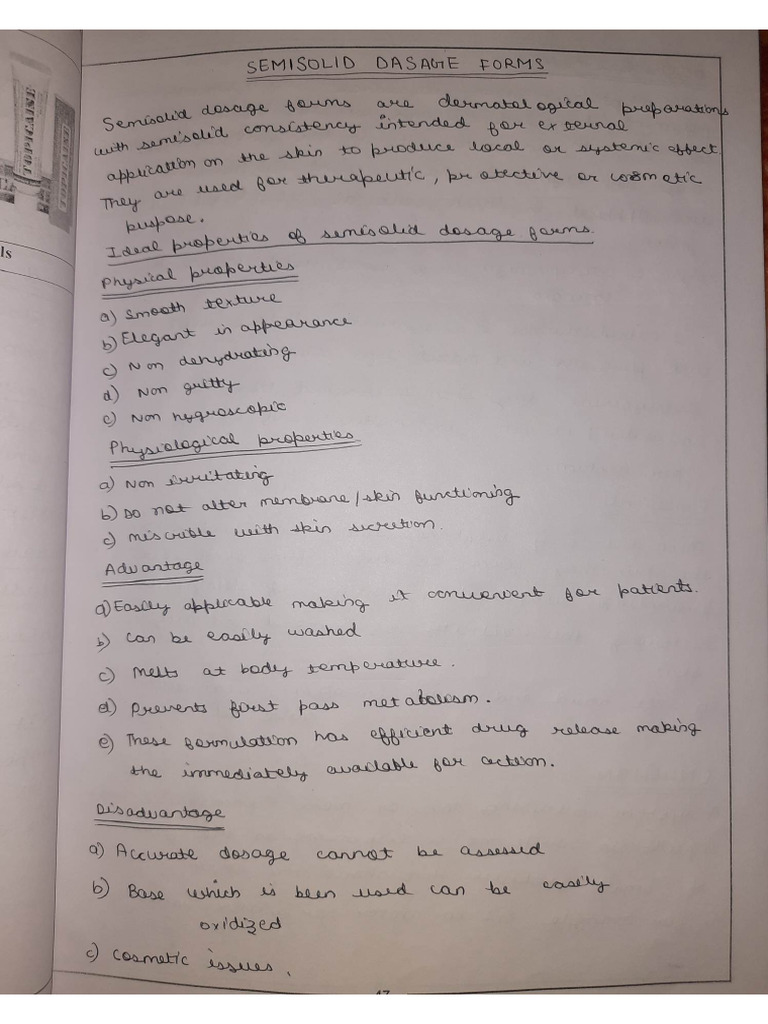 SEMISOLID DASAGE FORMS
Semisolid dosage forms are dermatological preparations
with semisolid consistency intended for external
application on the skin to produce local or systemic effect.
They are used for therapeutic, protective or cosmetic
puspose.
Ideal properties of semisolid dosage forms.
Physical properties
a) Smooth texture
b) Elegant in appearance
c) Non dehydrating
d) Non gritty
e) Non hygroscopic
Physiological properties
a) Non irritating
b) Do not alter membrane/skin functioning
c) miscrible with skin sicretion.
Advantage
a) Easily applicable making it convenient for patients.
b) Can be easily washed
c) Melts at body temperature.
d) Prevents first pass metabolism.
e) These formulation has efficient drug release making
the immediately available for action.
Disadvantage
a) Accurate dosage cannot be assessed
b) Base which is been used can be easily
oxidized
c) Cosmetic issues.
47
TOPICAINE
TOPICAINE
ls